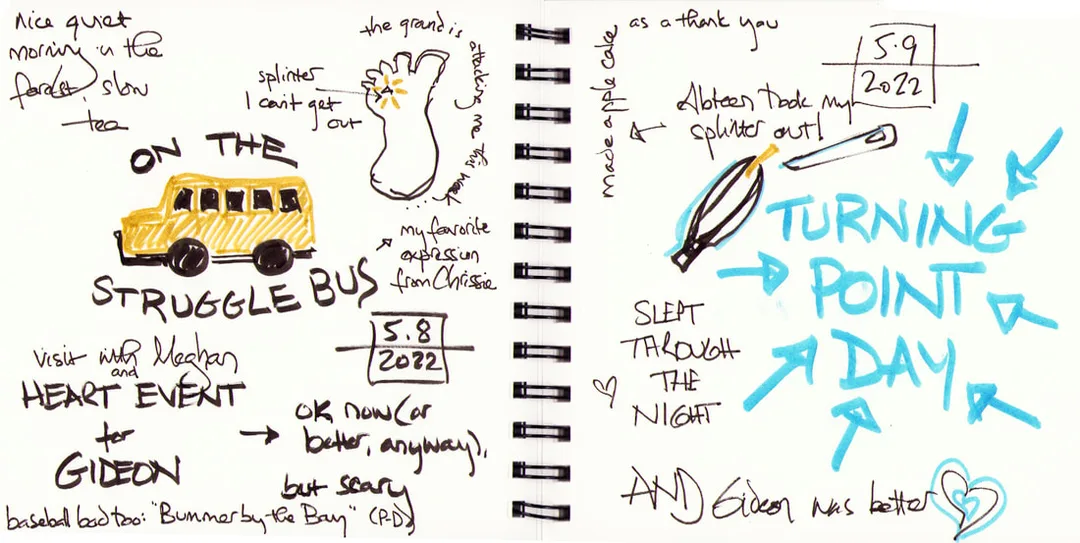 nice quiet
morning in the
forest slow
tea
the ground is
attacking me this week
splinter
I can't get
out
ON THE
STRUGGLE BUS
my favorite
expression
from Chrissie
5.8
2022
visit with Meghan
and
HEART EVENT
for
GIDEON
OK now (or
better, anyway),
but scary
baseball bad too: "Bummer by the Bay" (P-D)
as a thank you
made apple cake
5.9
2022
took my
splinter out!
TURNING
POINT
DAY
SLEPT
THROUGH
THE
NIGHT
AND Gideon was better